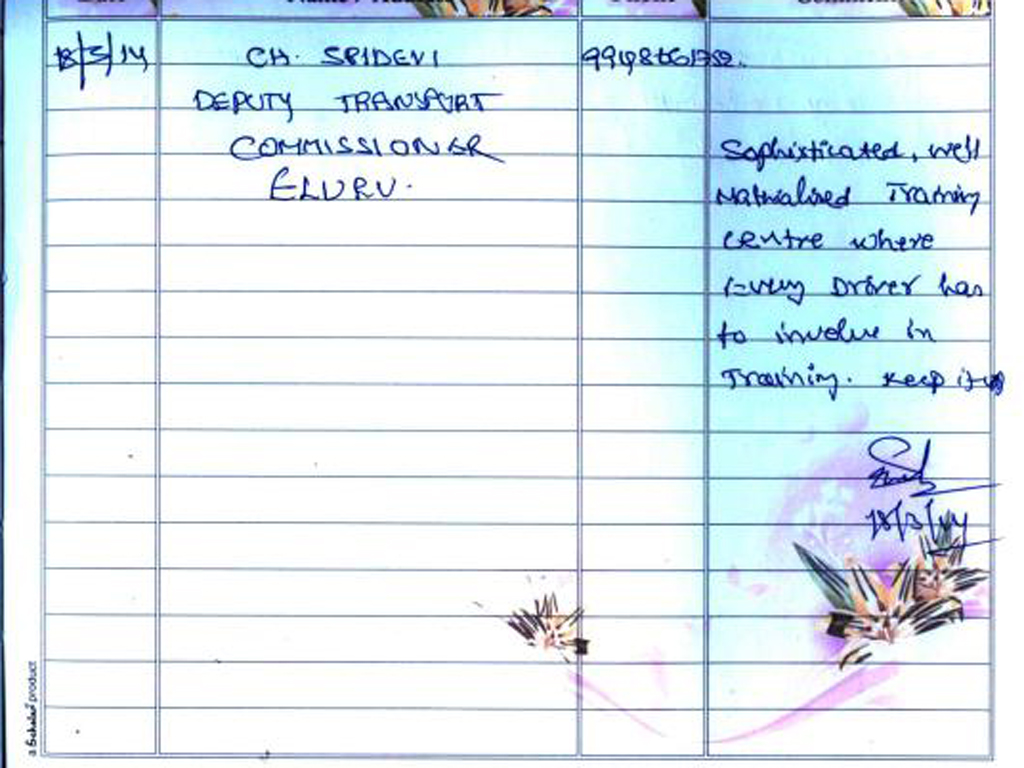 18/3/14 CH. SRIDEVI
DEPUTY TRANSPORT
COMMISSIONER
ELURU.
Sophisticated, well
Matrialised Training
centre where
Every Driver has
to involve in
Training. Keep it up
18/3/14
a Scholar product